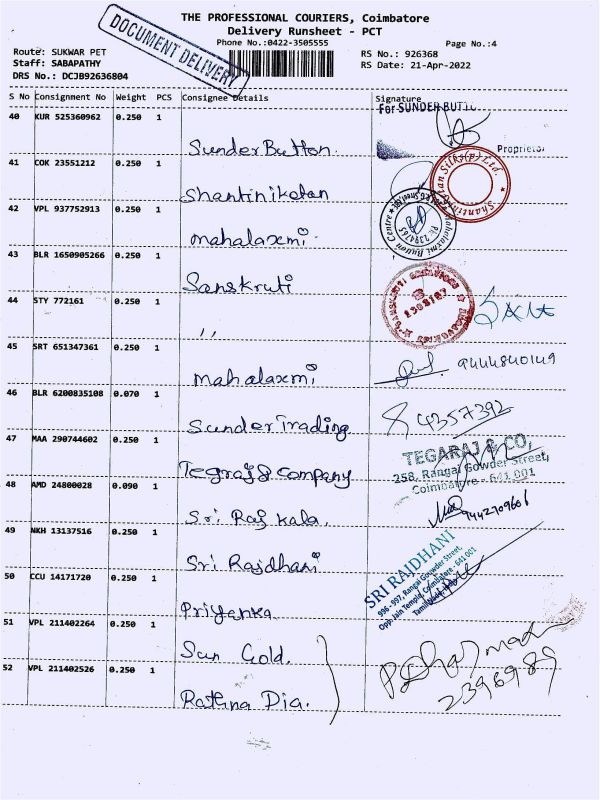 THE PROFESSIONAL COURIERS, Coimbatore
Delivery Runsheet - PCT
Phone No.:0422-3505555
Page No.:4
DOCUMENT DELIVERY
Route: SUKWAR PET
Staff: SABAPATHY
DRS No.: DCJB92636804
RS No.: 926368
RS Date: 21-Apr-2022
S No Consignment No Weight PCS Consignee Details Signature
For SUNDER BUTTO
40 KUR 525360962 0.250 1
Sunder Button.
Proprietor
41 COK 23551212 0.250 1
Shantiniketan
42 VPL 937752913 0.250 1
mahalaxmi.
43 BLR 1650905266 0.250 1
Sanskruti
44 STY 772161 0.250 1
,,
45 SRT 651347361 0.250 1
mahalaxmi
9444840149
46 BLR 6200835108 0.070 1
Sunder Trading
94357392
47 MAA 290744602 0.250 1
Tegraj & Company
TEGARAJ & CO,
258, Rangai Gowder Street,
Coimbatore - 641 001
48 AMD 24800028 0.090 1
Sri Raj Kala.
9442709661
49 NKH 13137516 0.250 1
Sri Rajdhani
SRI RAJDHANI
996 - 997, Rangai Gowder Street,
Opp. Jain Temple, Coimbatore - 641 001
Tamilnadu
50 CCU 14171720 0.250 1
Priyanka
51 VPL 211402264 0.250 1
Sun Gold.
52 VPL 211402526 0.250 1
Rathna Dia.
2396989